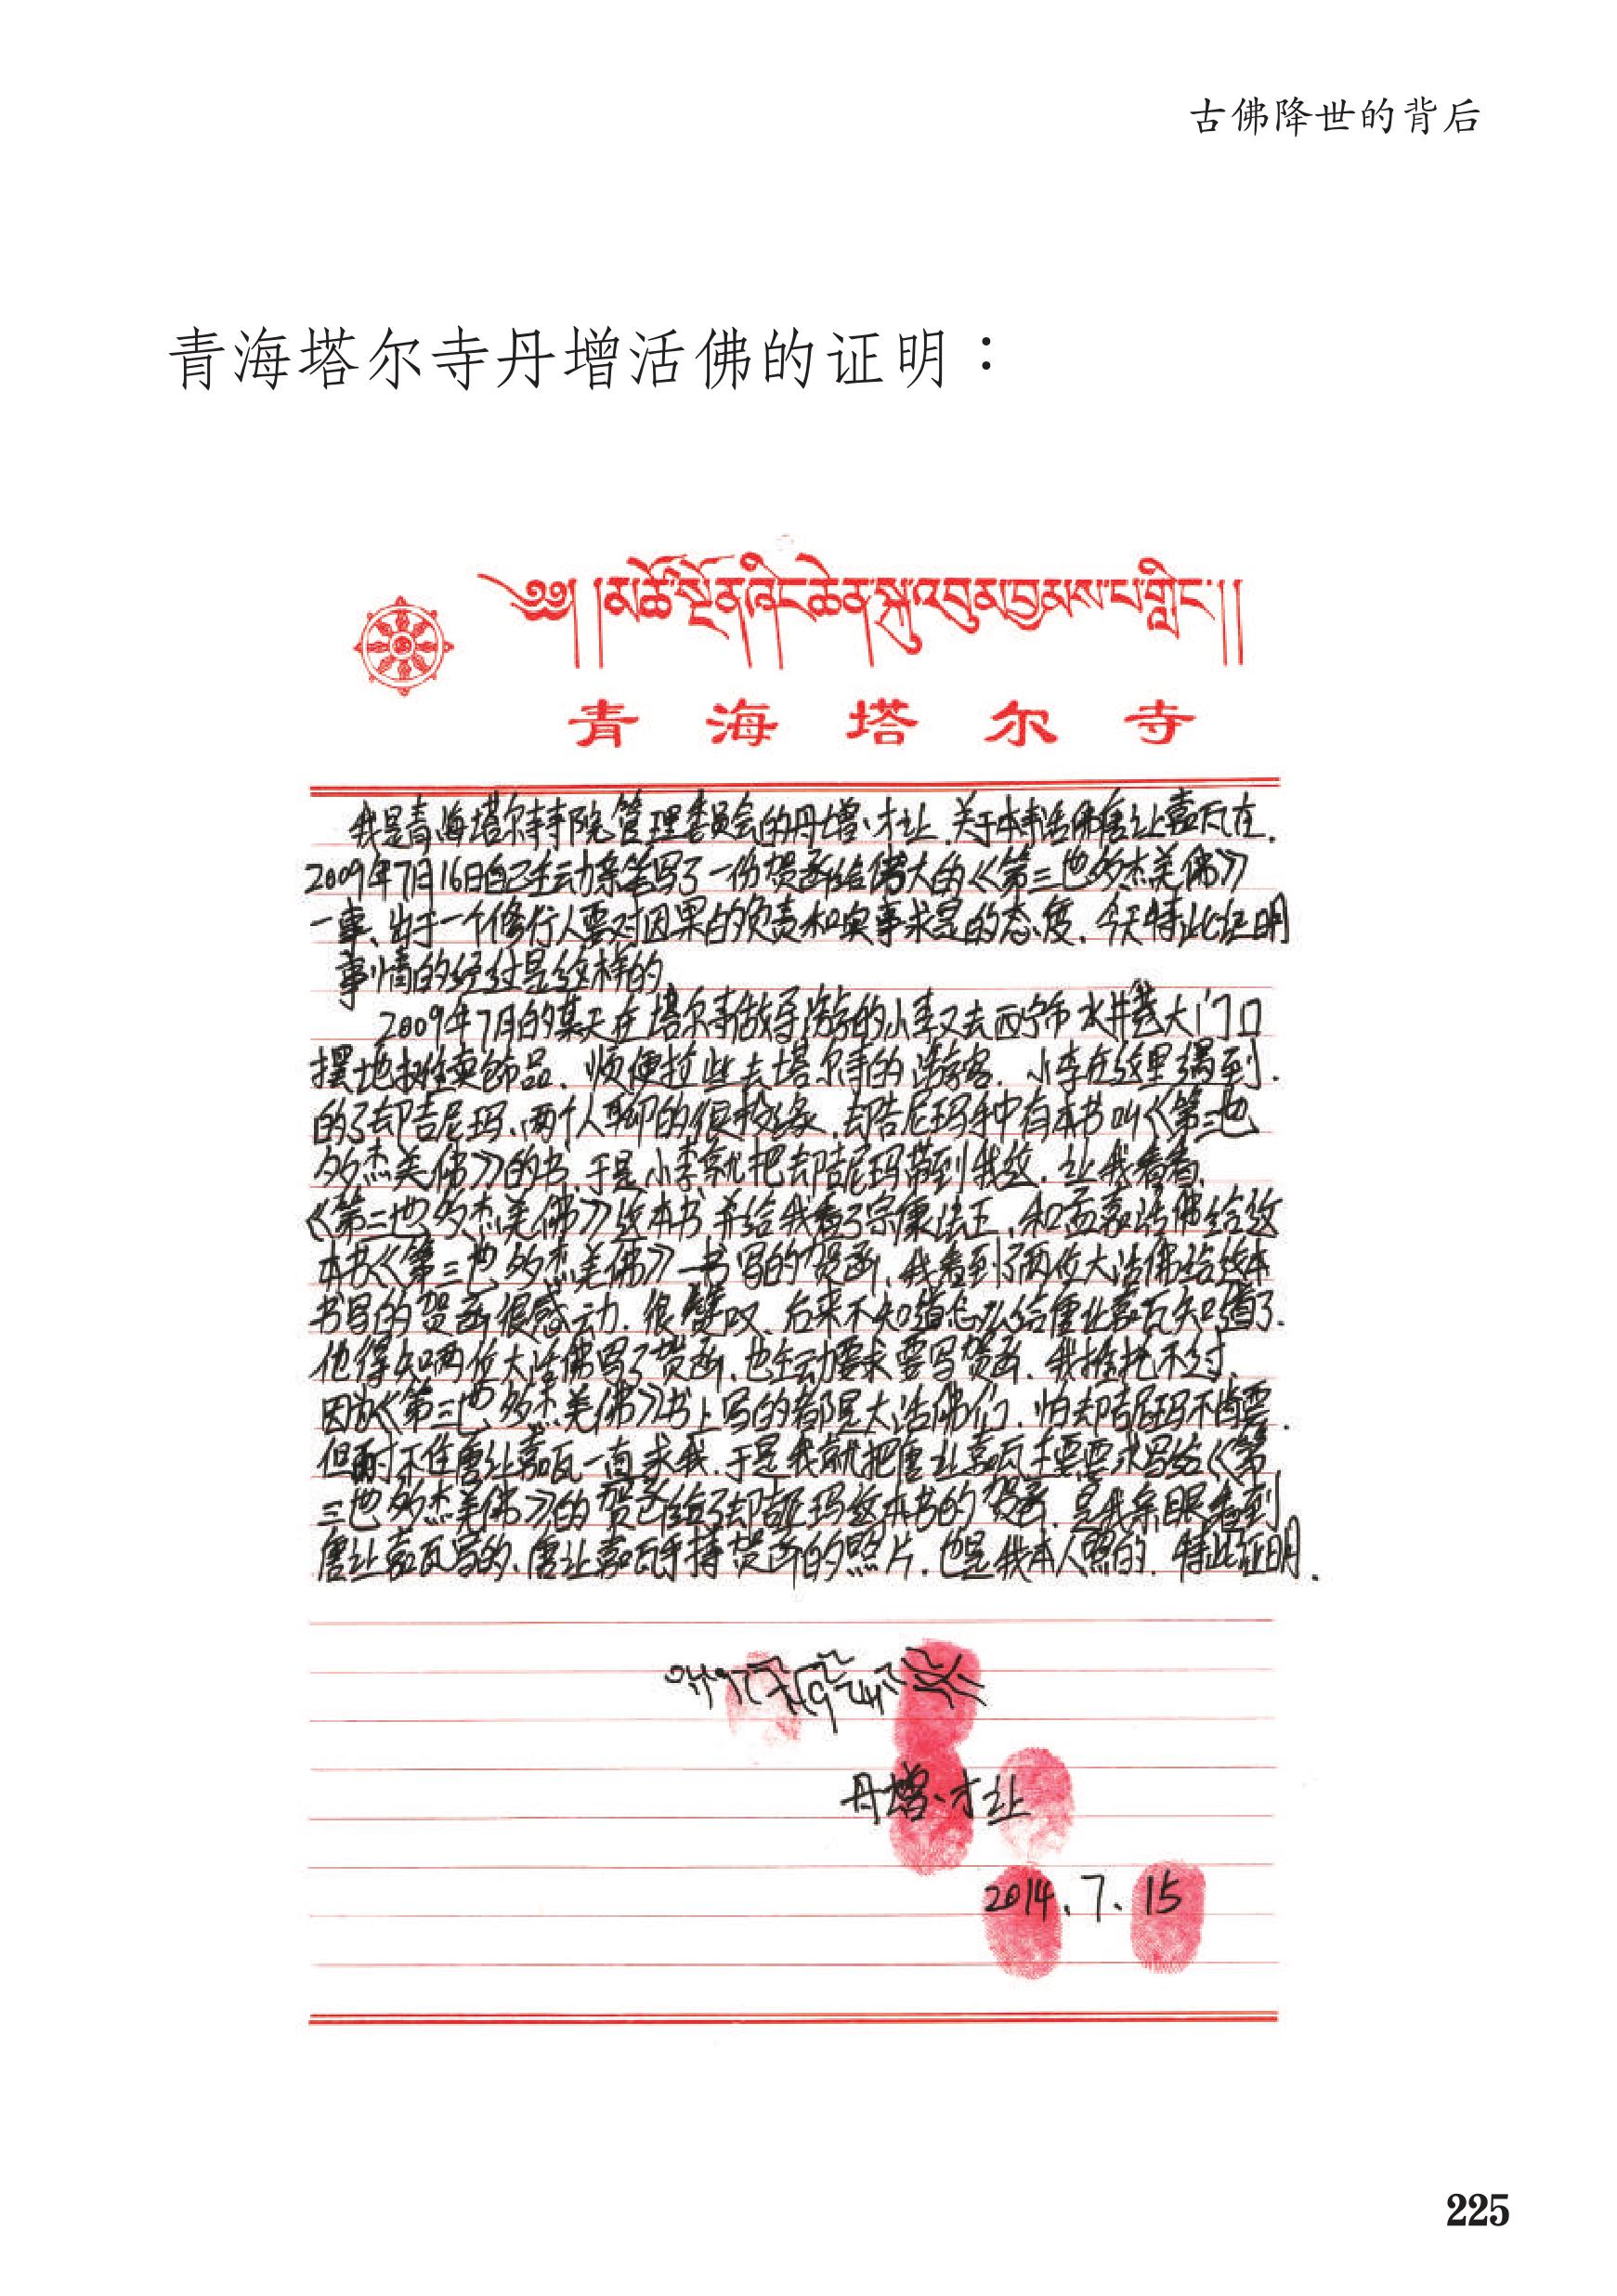 古佛降世的背后
青海塔尔寺丹增活佛的证明：
༄༅། །མཚོ་སྔོན་ཞིང་ཆེན་སྐུ་འབུམ་བྱམས་པ་གླིང་།།
青海塔尔寺
我是青海塔尔寺寺院管理委员会的丹增·才让.关于本寺活佛唐让嘉瓦在.
2009年7月16日自己主动亲笔写了一份贺函给伟大的《第三世多杰羌佛》
一事、出于一个修行人要对因果的负责和实事求是的态度.今天特此证明
事情的经过是这样的
2009年7月的某天在塔尔寺做导游的小李又去西宁市水井巷大门口
摆地摊卖饰品.顺便拉些去塔尔寺的游客.小李在这里遇到.
的了却吉尼玛、两个人聊的很投缘.却吉尼玛手中有本书叫《第三世
多杰羌佛》的书.于是小李就把却吉尼玛带到我这.让我看看.
《第三世多杰羌佛》这本书并给我看了宗康法王.和孟嘉活佛给这
本书《第三世多杰羌佛》一书写的贺函.我看到了两位大活佛给这本
书写的贺函很感动.很赞叹.后来不知道怎么给唐让嘉瓦知道了.
他得知两位大活佛写了贺函.也主动要求要写贺函.我推托不过.
因为《第三世多杰羌佛》书上写的都是大活佛们.怕却吉尼玛不肯要.
但耐不住唐让嘉瓦一直求我.于是我就把唐让嘉瓦主要要求写给《第
三世多杰羌佛》的贺函给了却吉尼玛这本书的贺函.是我亲眼看到
唐让嘉瓦写的、唐让嘉瓦手持贺函的照片.也是我本人照的.特此证明.
丹增·才让
2014.7.15
225